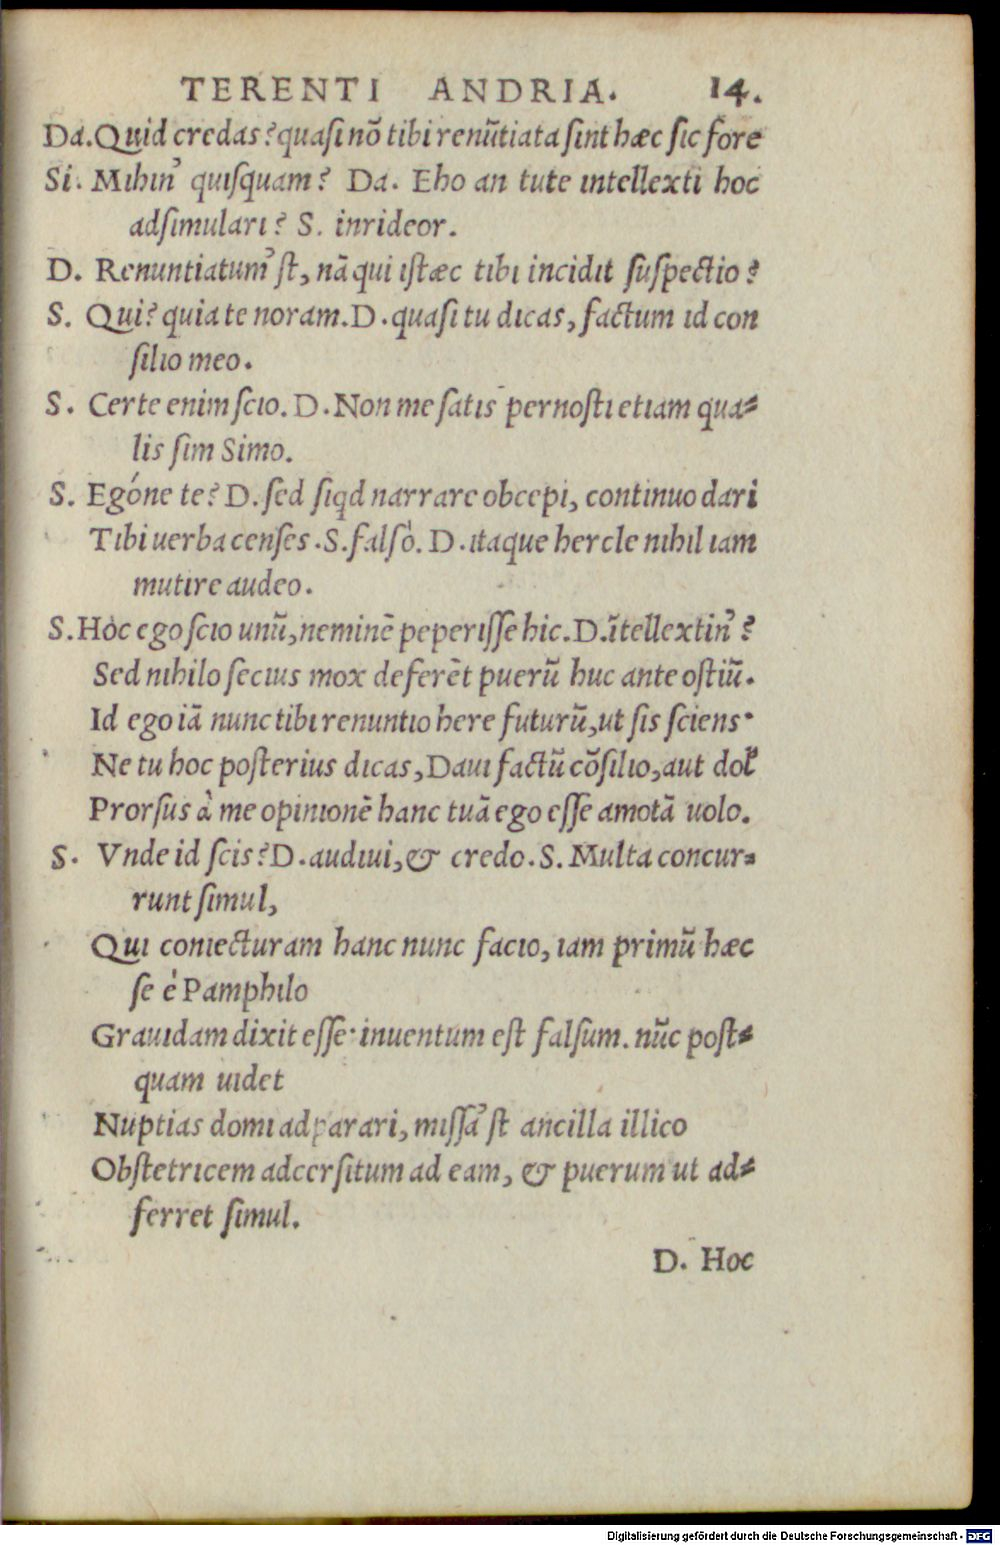 TERENTI ANDRIA. 14.
Da. Quid credas? quasi nõ tibi renũtiata sint hæc sic fore
Si. Mihin' quisquam? Da. Eho an tute intellexti hoc
adsimulari? S. inrideor.
D. Renuntiatum'st, nã qui istæc tibi incidit suspectio?
S. Qui? quia te noram. D. quasi tu dicas, factum id con
silio meo.
S. Certe enim scio. D. Non me satis pernosti etiam qua-
lis sim Simo.
S. Egóne te? D. sed siqd narrare obcepi, continuo dari
Tibi uerba censes. S. falsò. D. itaque hercle nihil iam
mutire audeo.
S. Hòc ego scio unũ, neminẽ peperisse hic. D. ĩtellextin'?
Sed nihilo secius mox deferẽt puerũ huc ante ostiũ.
Id ego iã nunc tibi renuntio here futurũ, ut sis sciens.
Ne tu hoc posterius dicas, Daui factũ cõsilio, aut dol'
Prorsus à me opinionẽ hanc tuã ego esse amotã uolo.
S. Vnde id scis? D. audiui, & credo. S. Multa concur-
runt simul,
Qui coniecturam hanc nunc facio, iam primũ hæc
se è Pamphilo
Grauidam dixit esse: inuentum est falsum. nũc post-
quam uidet
Nuptias domi adparari, missa'st ancilla illico
Obstetricem adcersitum ad eam, & puerum ut ad-
ferret simul.
D. Hoc
Digitalisierung gefördert durch die Deutsche Forschungsgemeinschaft - DFG